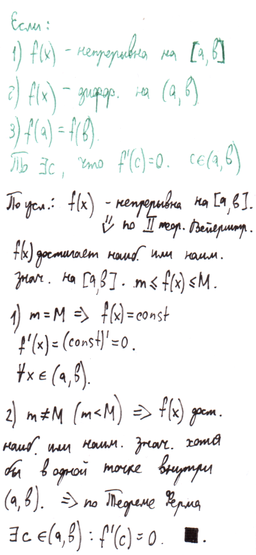 Если:
1) f(x) - непрерывна на [a,b]
2) f(x) - дифф. на (a,b)
3) f(a) = f(b).
То ∃c, что f'(c)=0. c∈(a,b)
По усл.: f(x) - непрерывна на [a,b].
⇓ по II теор. Вейерштр.
f(x) достигает наиб. или наим.
знач. на [a,b]. m ≤ f(x) ≤ M.
1) m = M => f(x) = const
f'(x) = (const)' = 0.
∀x ∈ (a,b).
2) m ≠ M (m < M) => f(x) дост.
наиб. или наим. знач. хотя
бы в одной точке внутри
(a,b). => по Теореме Ферма
∃c ∈ (a,b) : f'(c) = 0. ■.